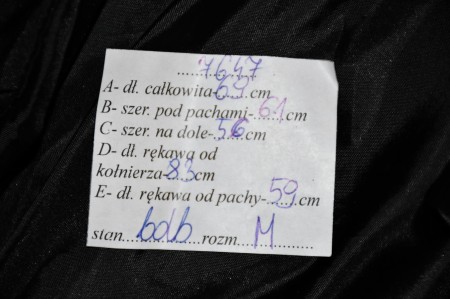 7647
A- dł. całkowita-69 cm
B- szer. pod pachami-61 cm
C- szer. na dole-56 cm
D- dł. rękawa od
kołnierza-83 cm
E- dł. rękawa od pachy-59 cm
stan bdb rozm M